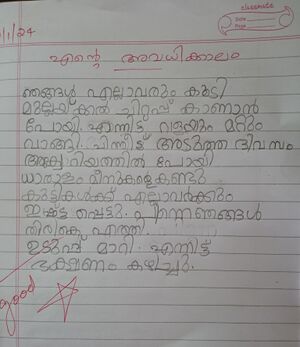 classmate
Date
Page
1/1/24
എന്റെ അവധിക്കാലം
ഞങ്ങൾ എല്ലാവരും കൂടി
മുല്ലയ്ക്കൽ ചിറപ്പ് കാണാൻ
പോയി. എന്നിട്ട് വളയും മറ്റും
വാങ്ങി. പിന്നിട്ട് അടുത്ത ദിവസം
അക്വേറിയത്തിൽ പോയി
ധാരാളം മീനുകളെകണ്ടു
കുട്ടികൾക്ക് എല്ലാവർക്കും
ഇഷ്ട പ്പെട്ടു. പിന്നെഞങ്ങൾ
തിരികെ എത്തി.
ഉടുപ്പ് മാറി. എന്നിട്ട്
ഭക്ഷണം കഴിച്ചു.
good